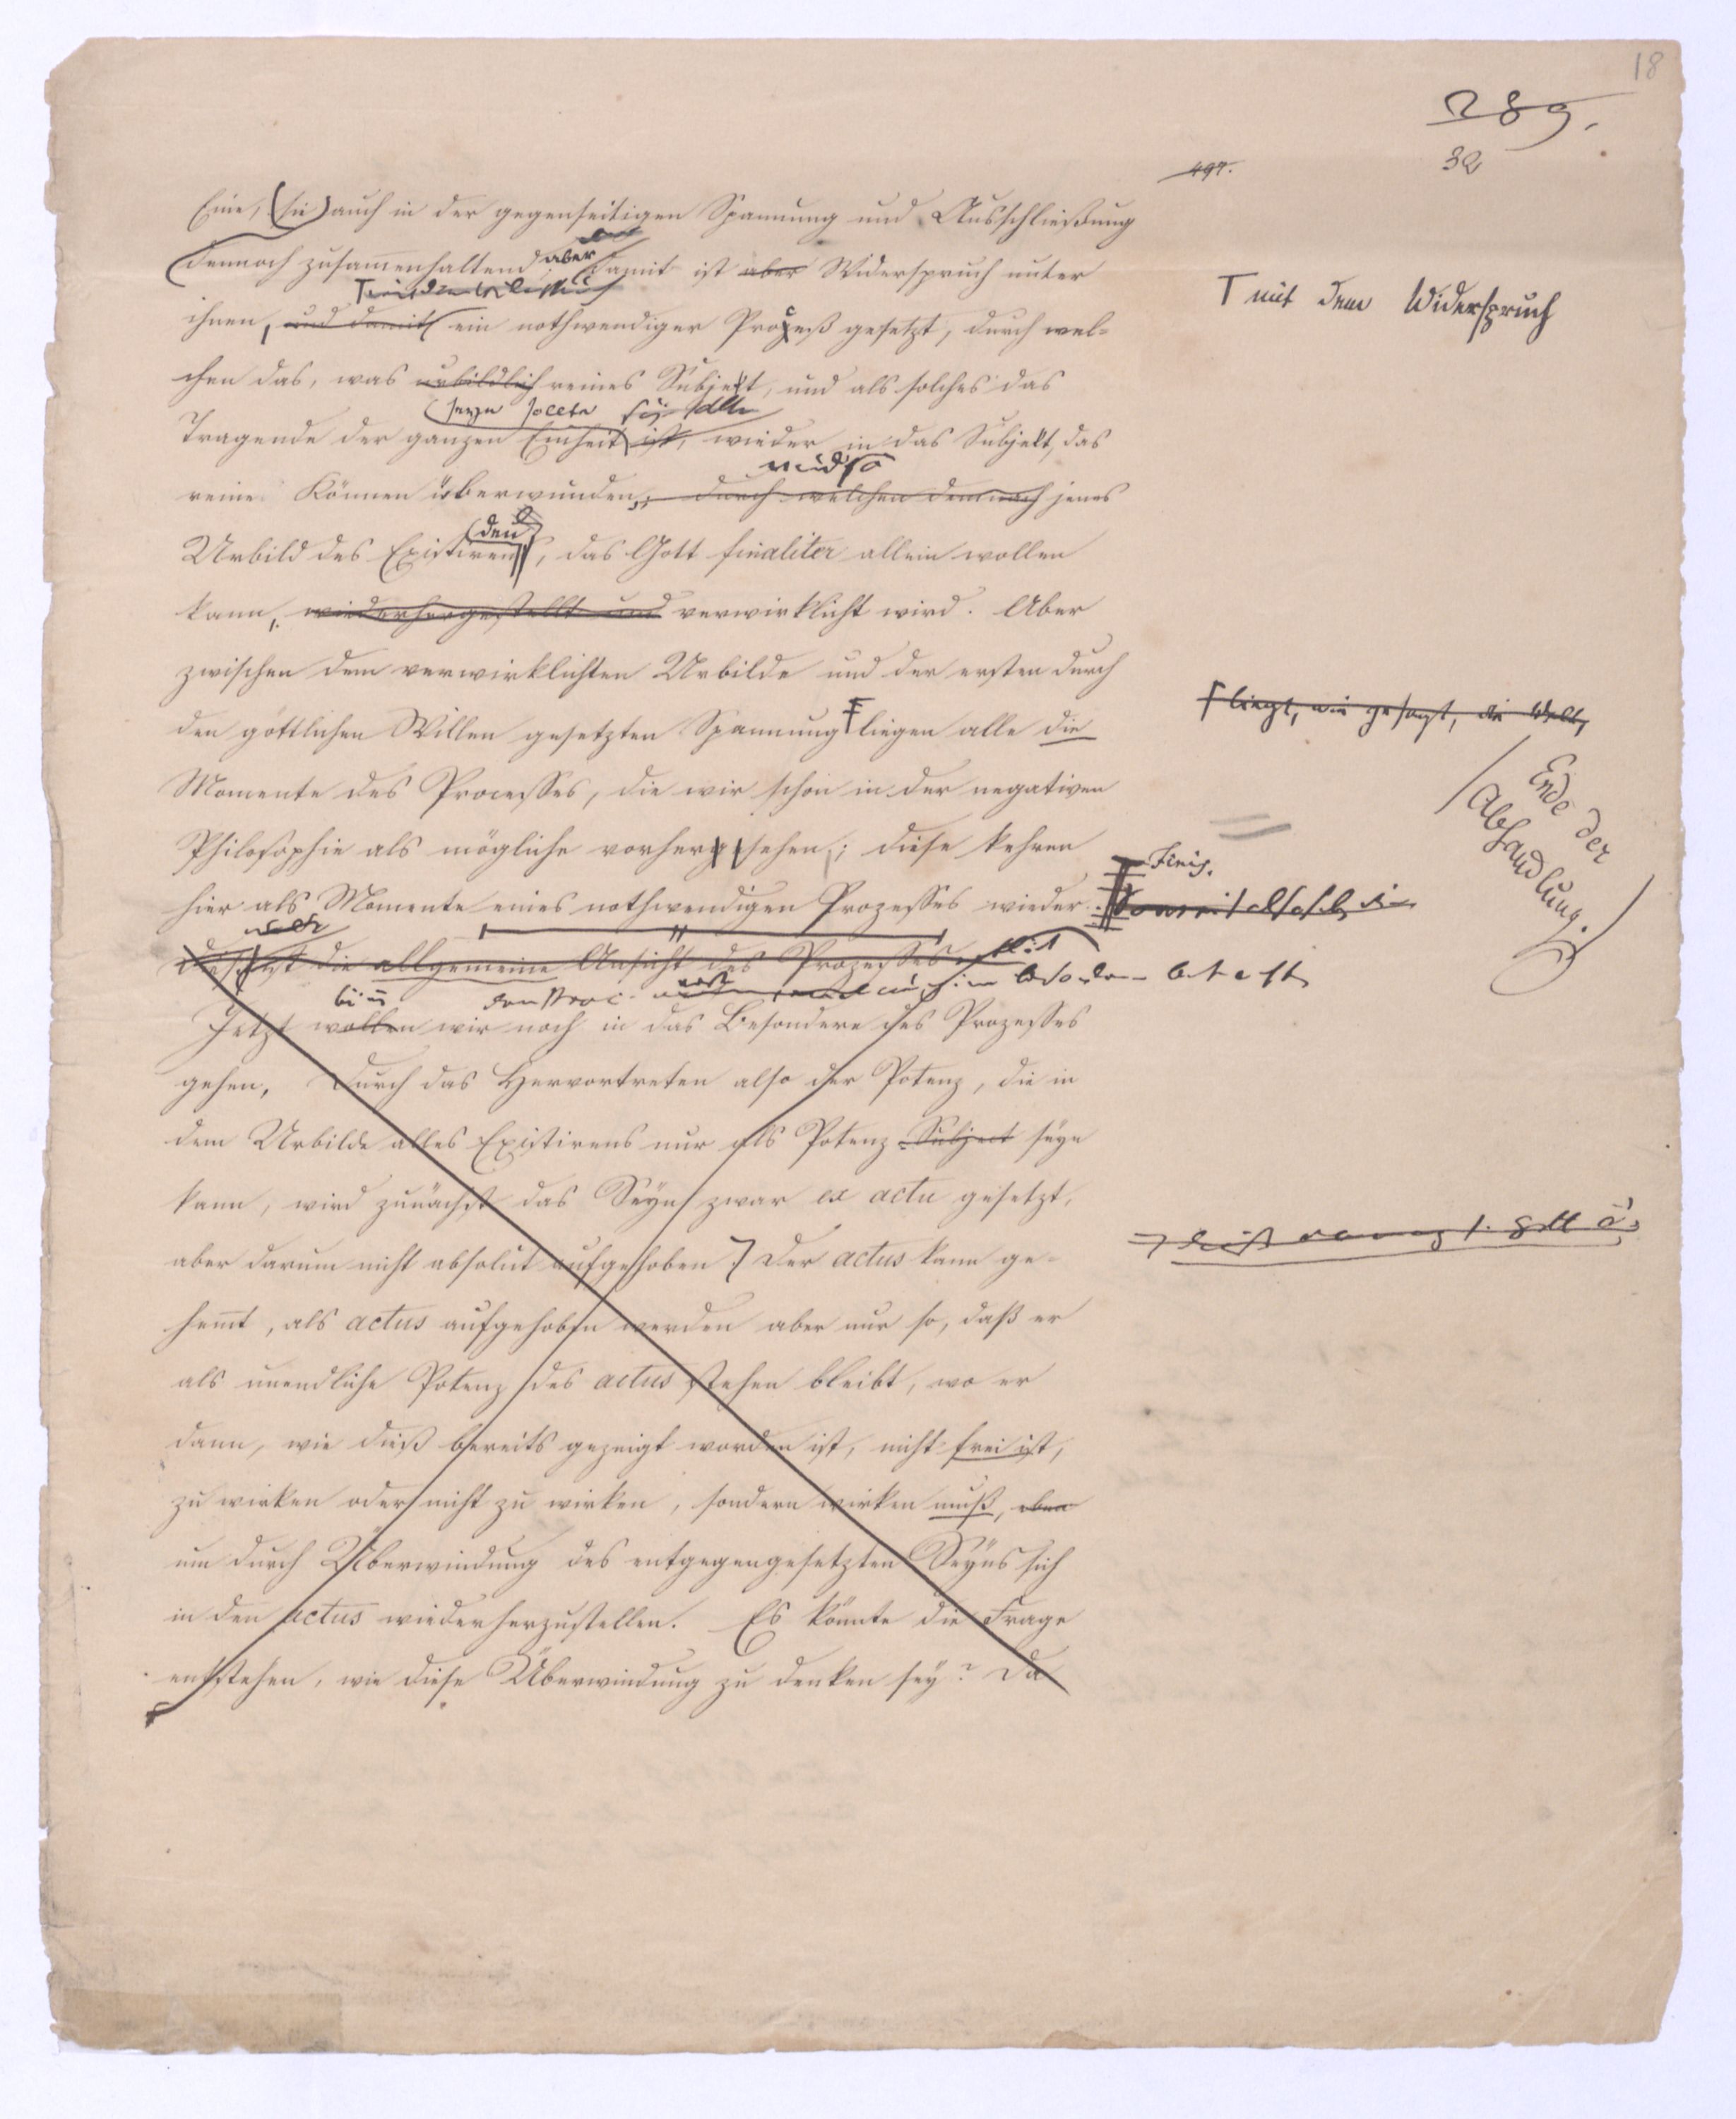 18
289.
32
497.
Eine, (sie) auch in der gegenseitigen Spannung und Ausschließung
aber
dennoch zusammenhaltend, damit ist aber Widerspruch unter
T mit dem Widerspruch
ihnen, und damit ein nothwendiger Proceß gesetzt, durch wel-
chen das, was urbildlich reines Subjekt, und als solches das
seyn sollte
Tragende der ganzen Einheit ist, wieder in das Subjekt, das
und so
reine Können überwunden, durch welchen demnach jenes
den
Urbild des Existirens, das Gott finaliter allein wollen
kann, wiederhergestellt und verwirklicht wird. Aber
zwischen dem verwirklichten Urbilde und der ersten durch
F liegt, wie gesagt, die Welt,
den göttlichen Willen gesetzten Spannung F liegen alle die
Momente des Processes, die wir schon in der negativen
Ende der
Abhandlung.
Philosophie als mögliche vorhergesehen; diese kehren
Finis.
hier als Momente eines nothwendigen Prozesses wieder.
Dieß ist die allgemeine Ansicht des Prozesses
Jetzt wollen wir noch in das Besondere des Prozesses
gehen. Durch das Hervortreten also der Potenz, die in
dem Urbilde alles Existirens nur als Potenz Subject seyn
kann, wird zunächst das Seyn zwar ex actu gesetzt,
aber darum nicht absolut aufgehoben. Der actus kann ge-
hemmt, als actus aufgehoben werden aber nur so, daß er
als unendliche Potenz des actus stehen bleibt, wo er
dann, wie dieß bereits gezeigt worden ist, nicht frei ist,
zu wirken oder nicht zu wirken, sondern wirken muß, eben
um durch Überwindung des entgegengesetzten Seyns sich
in den actus wiederherzustellen. Es könnte die Frage
entstehen, wie diese Überwindung zu denken sey? Da